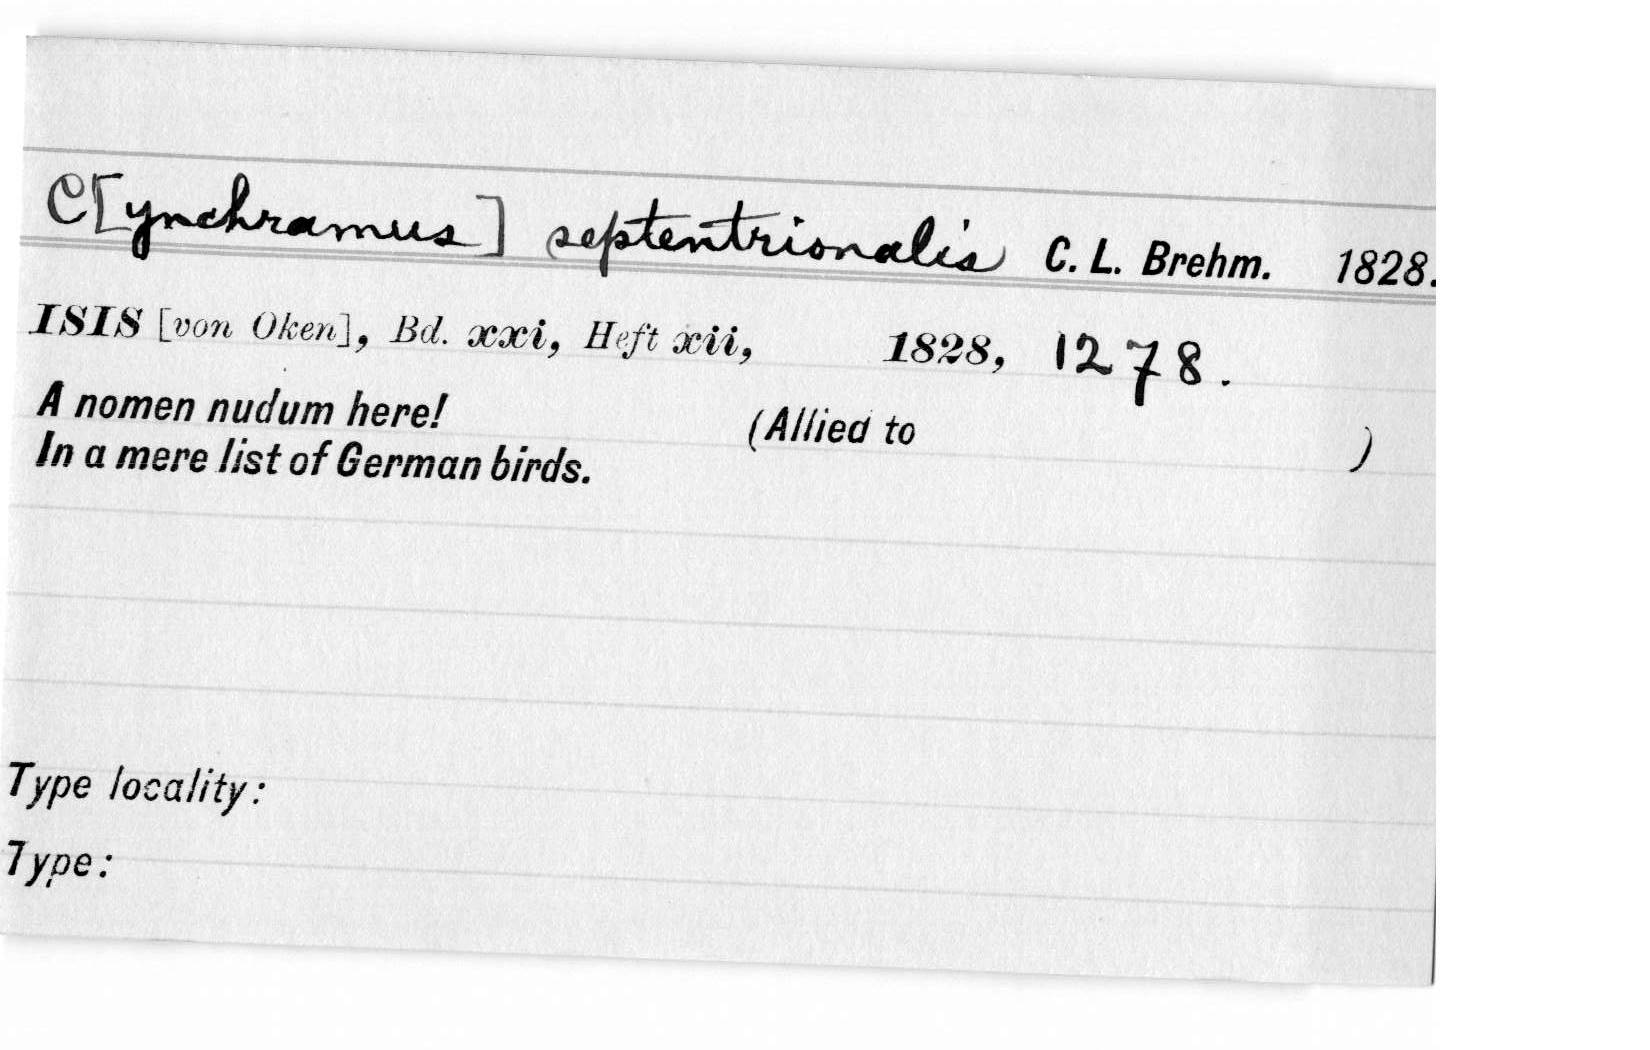 C[ynchramus] septentrionalis C. L. Brehm. 1828.
ISIS [von Oken], Bd. xxi, Heft xii, 1828, 1278.
A nomen nudum here! (Allied to )
In a mere list of German birds.
Type locality:
Type: